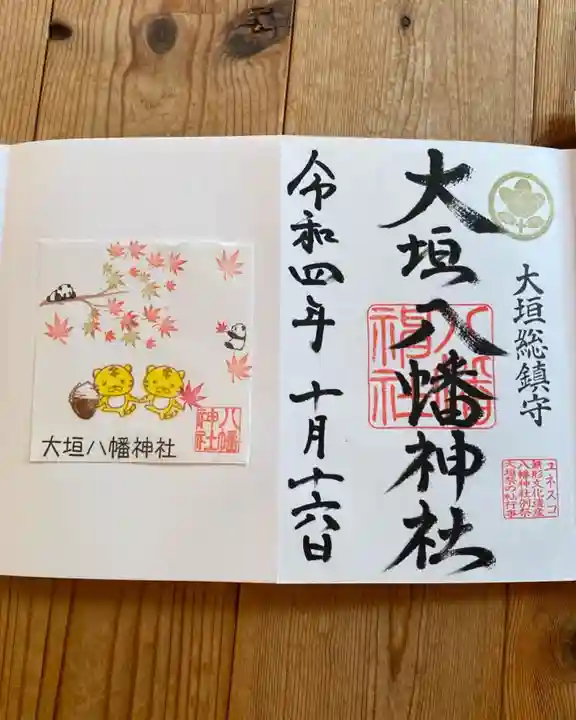 大垣総鎮守
大垣八幡神社
八幡
神社
ユネスコ
無形文化遺産
八幡神社例祭
大垣祭の𨉷行事
令和四年 十月十六日
大垣八幡神社
八幡
神社